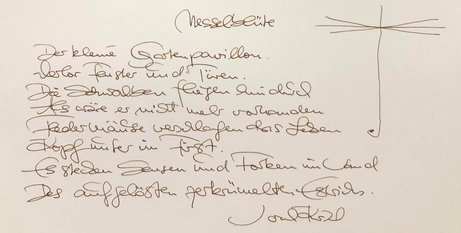 Nesselblüte
Der kleine Gartenpavillon.
verlor Fenster und Türen.
Die Schwalben fliegen hindurch
Als wäre er nicht mehr vorhanden
Fledermäuse verschlafen das Leben
Kopf unter im First.
Es stecken Sensen und Forken im Sand
Des aufgelösten gekrümelten Estrichs.